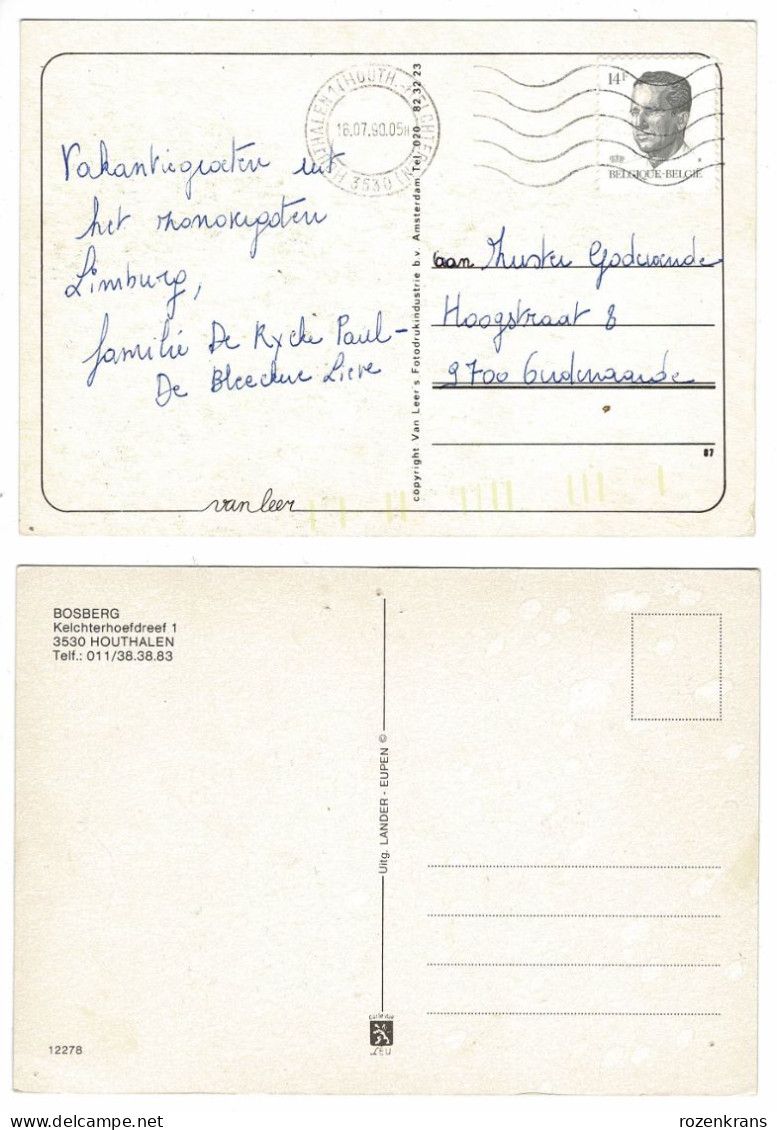 HOUTHALEN 1 (HOUTH.-HELCHTEREN)
16.07.90.05H
3530
14F
BELGIQUE-BELGIË
Vakantiegroeten uit
het zonovergoten
Limburg,
familie De Rycke Paul-
De Bleecker Lieve
copyright Van Leer's Fotodrukindustrie b.v. Amsterdam Tel. 020 82 32 23
aan Zuster Godeliande
Hoogstraat 8
9700 Oudenaarde
87
van leer
BOSBERG
Kelchterhoefdreef 1
3530 HOUTHALEN
Telf.: 011/38.38.83
Uitg. LANDER - EUPEN ©
12278
rozenkrans